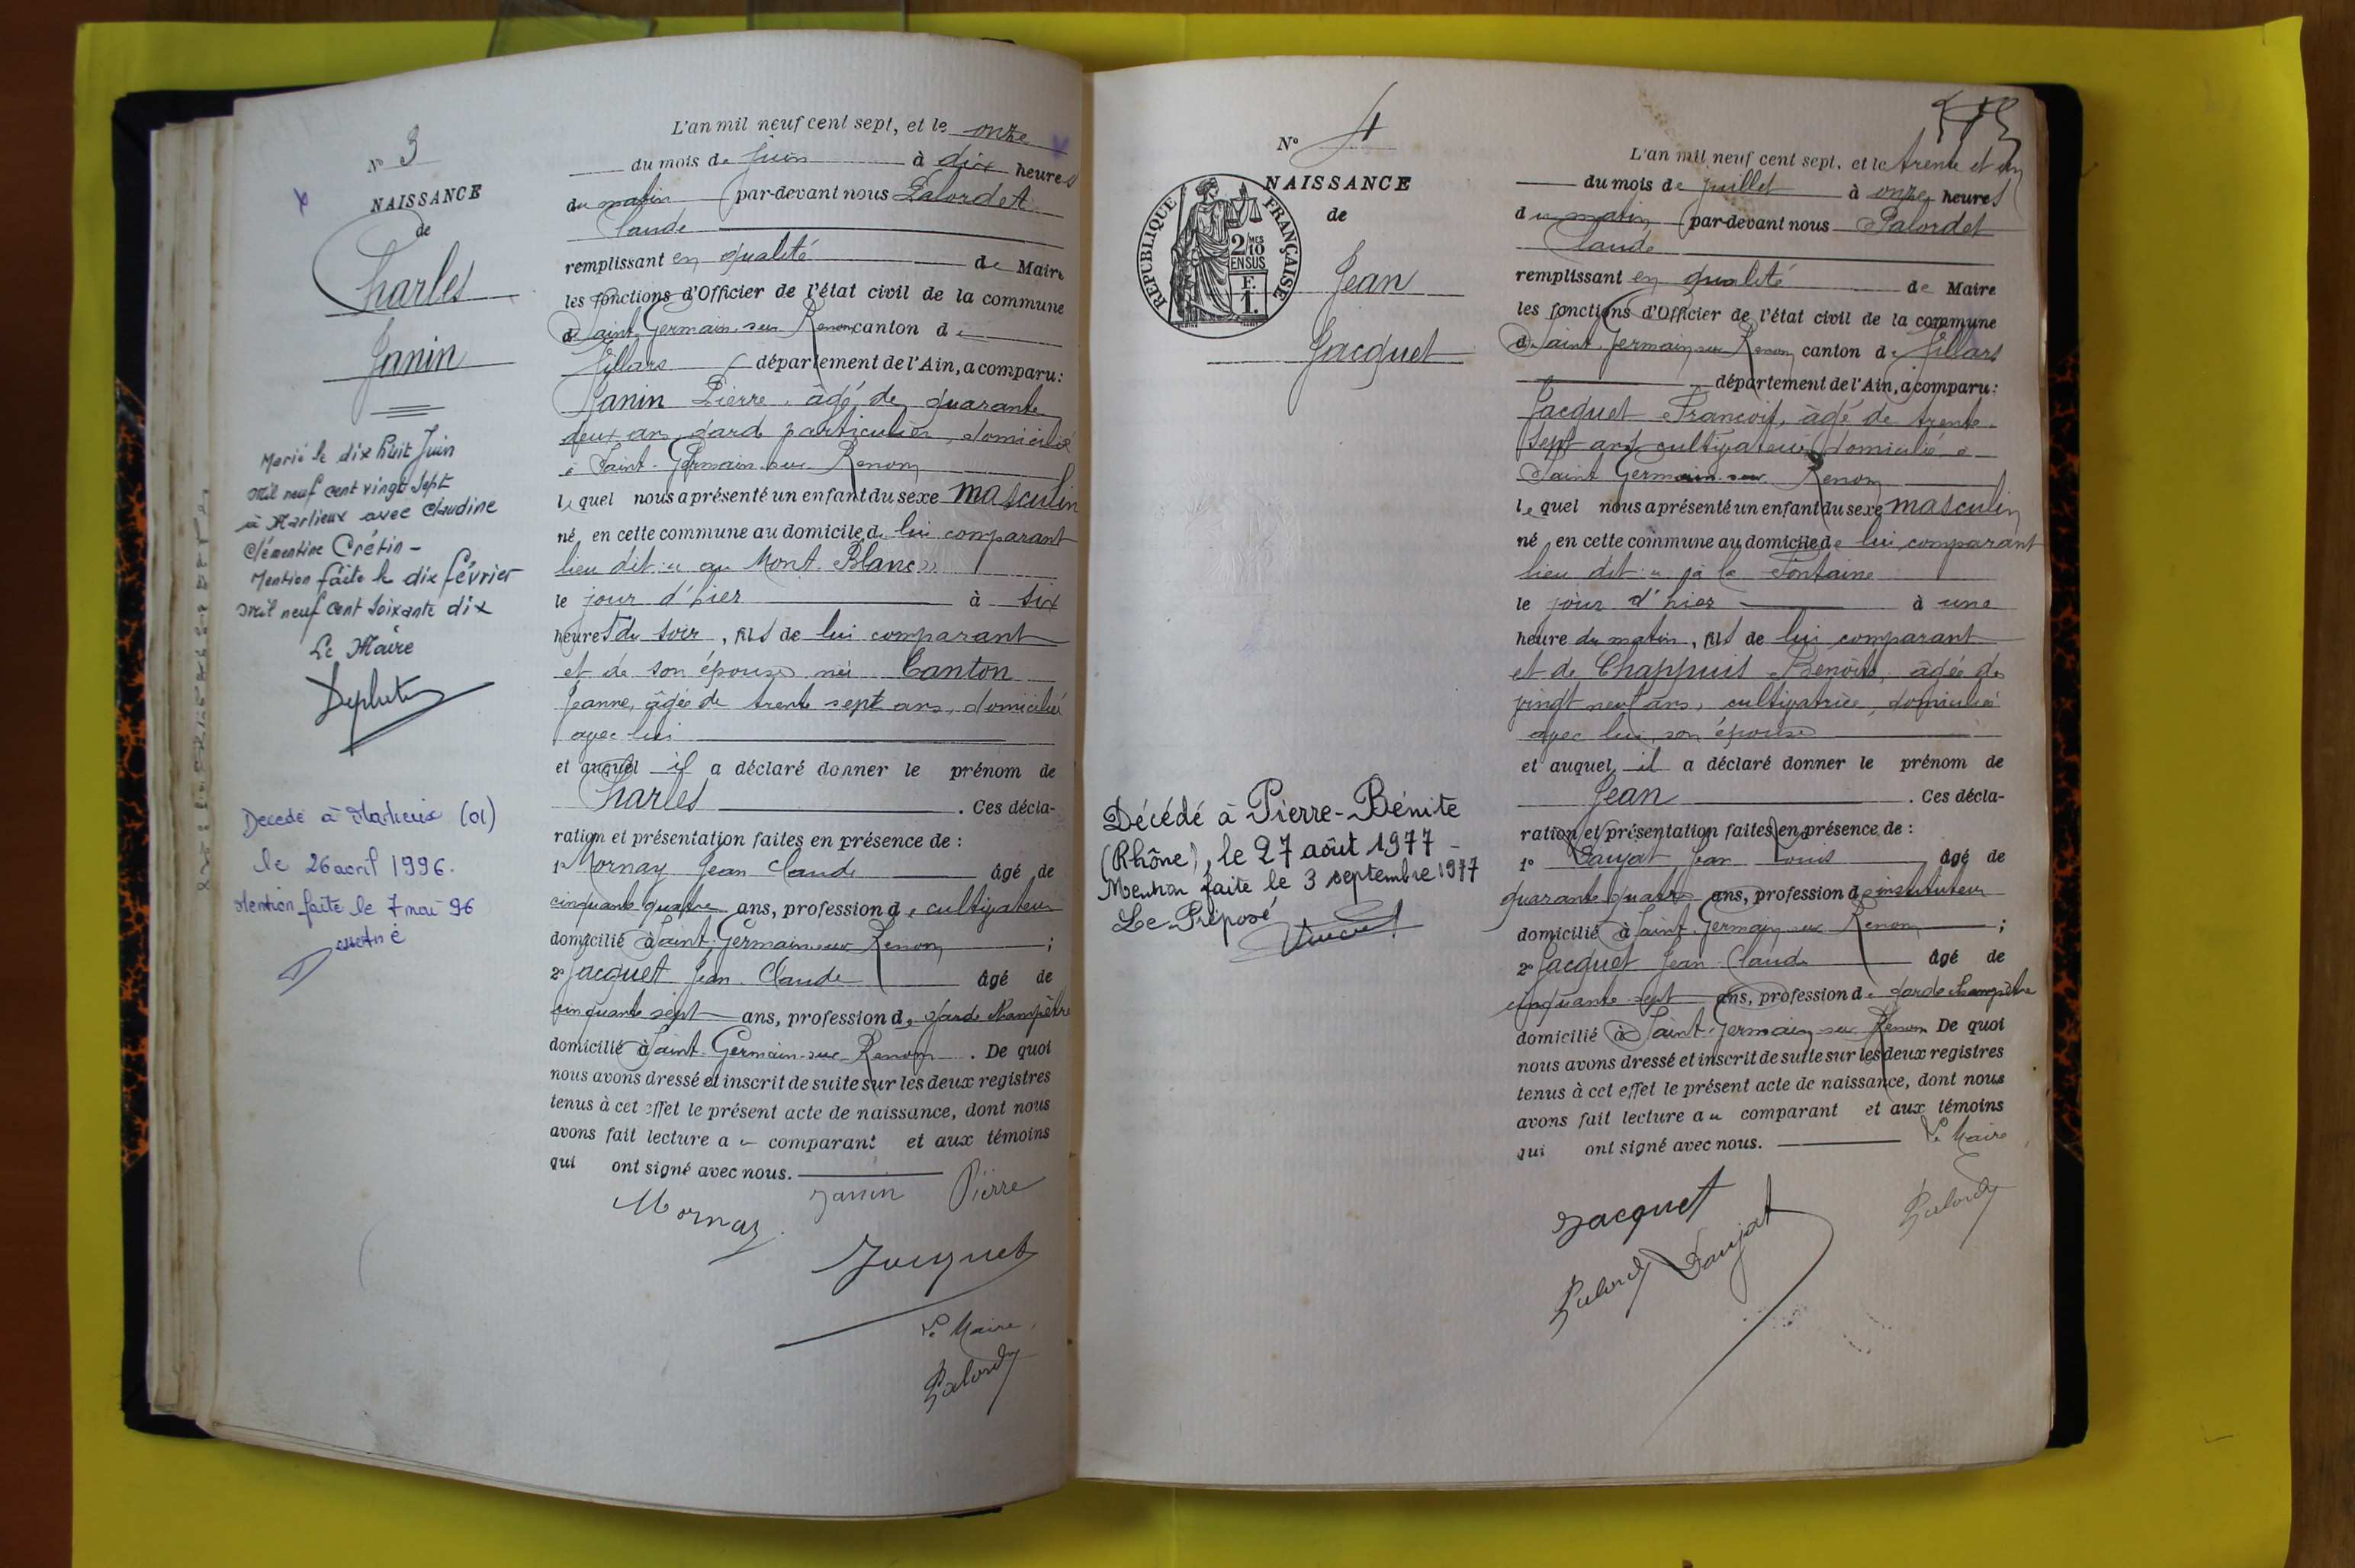 Nº 3
NAISSANCE
de
Charles
Janin
Marié le dix huit Juin
mil neuf cent vingt sept
à Marlieux avec Claudine
Clémentine Crétin -
Mention faite le dix février
mil neuf cent soixante dix
Le Maire
Décédé à Marlieux (01)
le 26 avril 1996.
Mention faite le 7 mai 96
L'an mil neuf cent sept, et le onze
du mois de Juin à dix heures
du matin par-devant nous Palordet
Claude
remplissant en qualité de Maire
les fonctions d'Officier de l'état civil de la commune
de Saint Germain sur Renon canton de
Villars département de l'Ain, a comparu :
Janin Pierre, âgé de quarante
deux ans, gard particulier, domicilié
à Saint-Germain-sur-Renon
lequel nous a présenté un enfant du sexe masculin
né, en cette commune au domicile de lui comparant
lieu dit « au Mont Blanc »
le jour d'hier à six
heures du soir, fils de lui comparant
et de son épouse née Canton
Jeanne, âgée de trente sept ans, domiciliée
avec lui
et auquel il a déclaré donner le prénom de
Charles . Ces décla-
ration et présentation faites en présence de :
1º Mornay Jean Claude âgé de
cinquante quatre ans, profession de cultivateur
domicilié à Saint-Germain-sur-Renon ;
2º Jacquet Jean-Claude âgé de
cinquante sept ans, profession de garde champêtre
domicilié à Saint-Germain-sur-Renon . De quoi
nous avons dressé et inscrit de suite sur les deux registres
tenus à cet effet le présent acte de naissance, dont nous
avons fait lecture au comparant et aux témoins
qui ont signé avec nous.
Janin Pierre
Mornay
Jacquet
Le Maire,
Palordet
Nº 4
NAISSANCE
de
Jean
Jacquet
REPUBLIQUE FRANÇAISE
2/10 MES
EN SUS
F.
1.
Décédé à Pierre-Bénite
(Rhône), le 27 août 1977 -
Mention faite le 3 septembre 1977
Le Préposé
L'an mil neuf cent sept, et le trente et un
du mois de Juillet à onze heures
du matin par-devant nous Palordet
Claude
remplissant en qualité de Maire
les fonctions d'Officier de l'état civil de la commune
de Saint-Germain-sur-Renon canton de Villars
département de l'Ain, a comparu :
Jacquet François, âgé de trente
sept ans cultivateur domicilié à
Saint Germain-sur Renon
lequel nous a présenté un enfant du sexe masculin
né, en cette commune au domicile de lui comparant
lieu dit « à la Fontaine
le jour d'hier à une
heure du matin, fils de lui comparant
et de Chappuis Benoîte, âgée de
vingt neuf ans, cultivatrice, domiciliée
avec lui, son épouse
et auquel il a déclaré donner le prénom de
Jean . Ces décla-
ration et présentation faites en présence de :
1º Daujat Jean Louis âgé de
quarante quatre ans, profession de instituteur
domicilié à Saint-Germain-sur Renon ;
2º Jacquet Jean-Claude âgé de
cinquante-sept ans, profession de garde champêtre
domicilié à Saint-Germain-sur Renon De quoi
nous avons dressé et inscrit de suite sur les deux registres
tenus à cet effet le présent acte de naissance, dont nous
avons fait lecture au comparant et aux témoins
qui ont signé avec nous. Le Maire,
Jacquet
Palordet
Daujat
Palordet